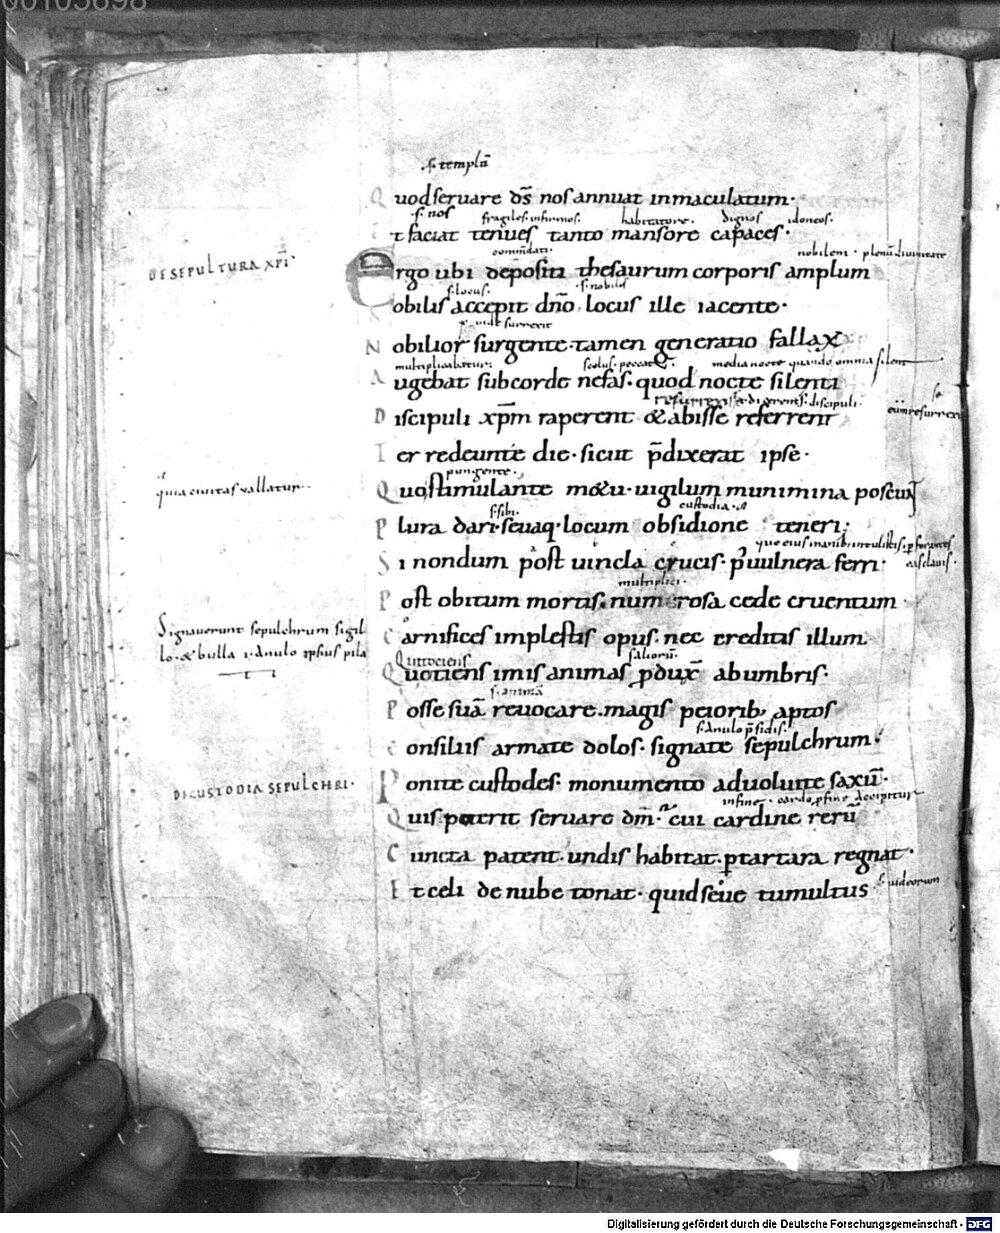 00105698
.s. templū
Quod seruare ds̄ nos annuat inmaculatum·
.s. nos fragiles. infirmos. habitatore. dignos idoneos.
Et faciat tenues tanto mansore capaces·
DE SEPULTURA XPI
nobilem · plenū diuinitate
Ergo ubi depositi thesaurum corporis amplum
s. locus. .s. nobilis
Nobilis accepit dn̄o locus ille iacente·
surrexit
Nobilior surgente· tamen generatio fallax
multiplicabatur: scelus. media nocte quando omnia silent
Augebat subcorde nefas· quod nocte silenti
discipuli.
Discipuli xp̄m raperent & abisse referrent
Ter redeunte die· sicut p̄dixerat ipse·
quia ciuitas uallatur..
pungente.
Quo stimulante metu· uigilum munimina poscunt
s. sibi. custodia.
Plura dari· seuaq· locum obsidione teneri;
Si nondum post uincla crucis· p uulnera ferri·
multiplici.
Post obitum mortis· numerosa cede cruentum
Signauerunt sepulchrum sigil
lo· & bulla
Carnifices implestis opus· nec creditis illum
Quotiens imis animas p̄duxit abumbris·
s. animā
Posse suā reuocare· magis peiorib; aptos
s. anulo p̄sidis.
Consiliis armate dolos· signate sepulchrum·
DE CUSTODIA SEPULCHRI·
Ponite custodes· monumento aduoluite saxū·
Quis poterit seruare dm̄· cui cardine rerū
Cuncta patent· undis habitat· p tartara regnat·
s. iudeorum
Et celi de nube tonat· quid seue tumultus
Digitalisierung gefördert durch die Deutsche Forschungsgemeinschaft - DFG